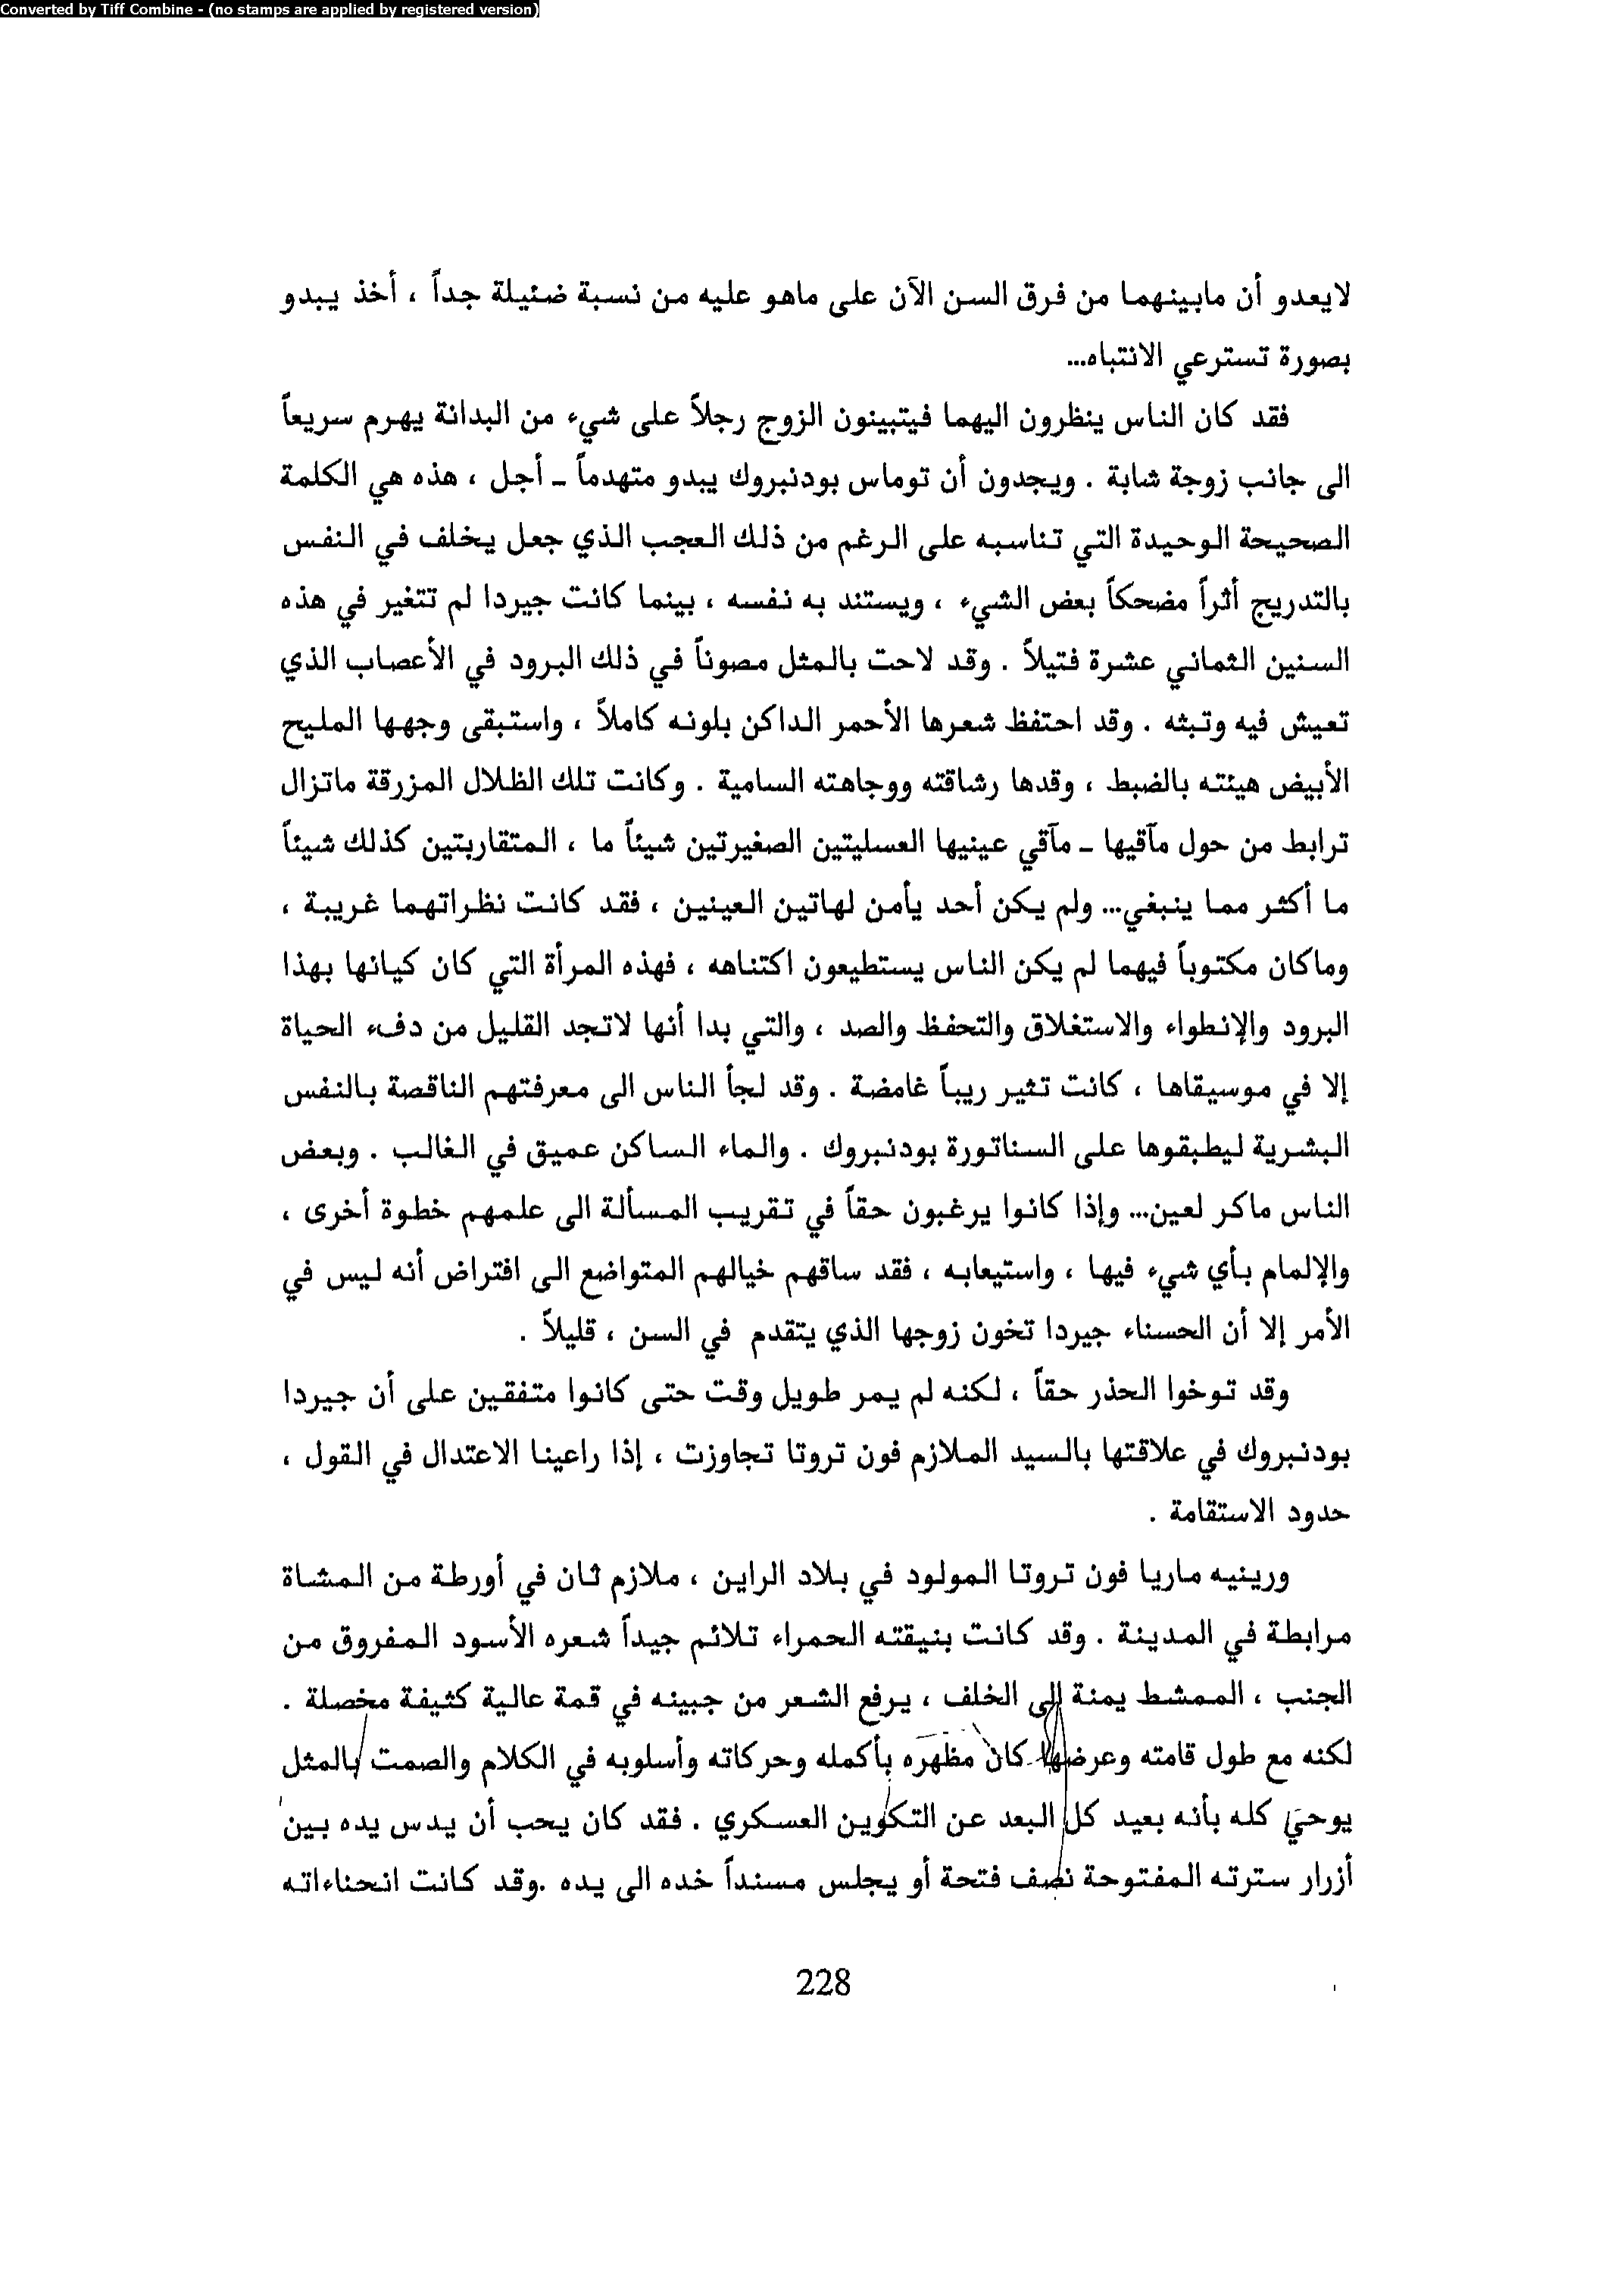 Converted by Tiff Combine - (no stamps are applied by registered version)
لايعدو أن مابينهما من فرق السن الآن على ماهو عليه من نسبة ضئيلة جداً ، أخذ يبدو
بصورة تسترعي الانتباه...
فقد كان الناس ينظرون اليهما فيتبينون الزوج رجلاً على شيء من البدانة يهرم سريعاً
الى جانب زوجة شابة . ويجدون أن توماس بودنبروك يبدو متهدماً ـ أجل ، هذه هي الكلمة
الصحيحة الوحيدة التي تناسبه على الرغم من ذلك العجب الذي جعل يخلف في النفس
بالتدريج أثراً مضحكاً بعض الشيء ، ويستند به نفسه ، بينما كانت جيردا لم تتغير في هذه
السنين الثماني عشرة فتيلاً . وقد لاحت بالمثل مصوناً في ذلك البرود في الأعصاب الذي
تعيش فيه وتبثه . وقد احتفظ شعرها الأحمر الداكن بلونه كاملاً ، واستبقى وجهها المليح
الأبيض هيئته بالضبط ، وقدها رشاقته ووجاهته السامية . وكانت تلك الظلال المزرقة ماتزال
ترابط من حول مآقيها ـ مآقي عينيها العسليتين الصغيرتين شيئاً ما ، المتقاربتين كذلك شيئاً
ما أكثر مما ينبغي... ولم يكن أحد يأمن لهاتين العينين ، فقد كانت نظراتهما غريبة ،
وماكان مكتوباً فيهما لم يكن الناس يستطيعون اكتناهه ، فهذه المرأة التي كان كيانها بهذا
البرود والإنطواء والاستغلاق والتحفظ والصد ، والتي بدا أنها لاتجد القليل من دفء الحياة
إلا في موسيقاها ، كانت تثير ريباً غامضة . وقد لجأ الناس الى معرفتهم الناقصة بالنفس
البشرية ليطبقوها على السناتورة بودنبروك . والماء الساكن عميق في الغالب . وبعض
الناس ماكر لعين... وإذا كانوا يرغبون حقاً في تقريب المسألة الى علمهم خطوة أخرى ،
والإلمام بأي شيء فيها ، واستيعابه ، فقد ساقهم خيالهم المتواضع الى افتراض أنه ليس في
الأمر إلا أن الحسناء جيردا تخون زوجها الذي يتقدم في السن ، قليلاً .
وقد توخوا الحذر حقاً ، لكنه لم يمر طويل وقت حتى كانوا متفقين على أن جيردا
بودنبروك في علاقتها بالسيد الملازم فون تروتا تجاوزت ، إذا راعينا الاعتدال في القول ،
حدود الاستقامة .
ورينيه ماريا فون تروتا المولود في بلاد الراين ، ملازم ثان في أورطة من المشاة
مرابطة في المدينة . وقد كانت بنيقته الحمراء تلائم جيداً شعره الأسود المفروق من
الجنب ، الممشط يمنة إلى الخلف ، يرفع الشعر من جبينه في قمة عالية كثيفة مخصلة .
لكنه مع طول قامته وعرضها كان مظهره بأكمله وحركاته وأسلوبه في الكلام والصمت بالمثل
يوحي كله بأنه بعيد كل البعد عن التكوين العسكري . فقد كان يحب أن يدس يده بين
أزرار سترته المفتوحة نصف فتحة أو يجلس مسنداً خده الى يده .وقد كانت انحناءاته
228